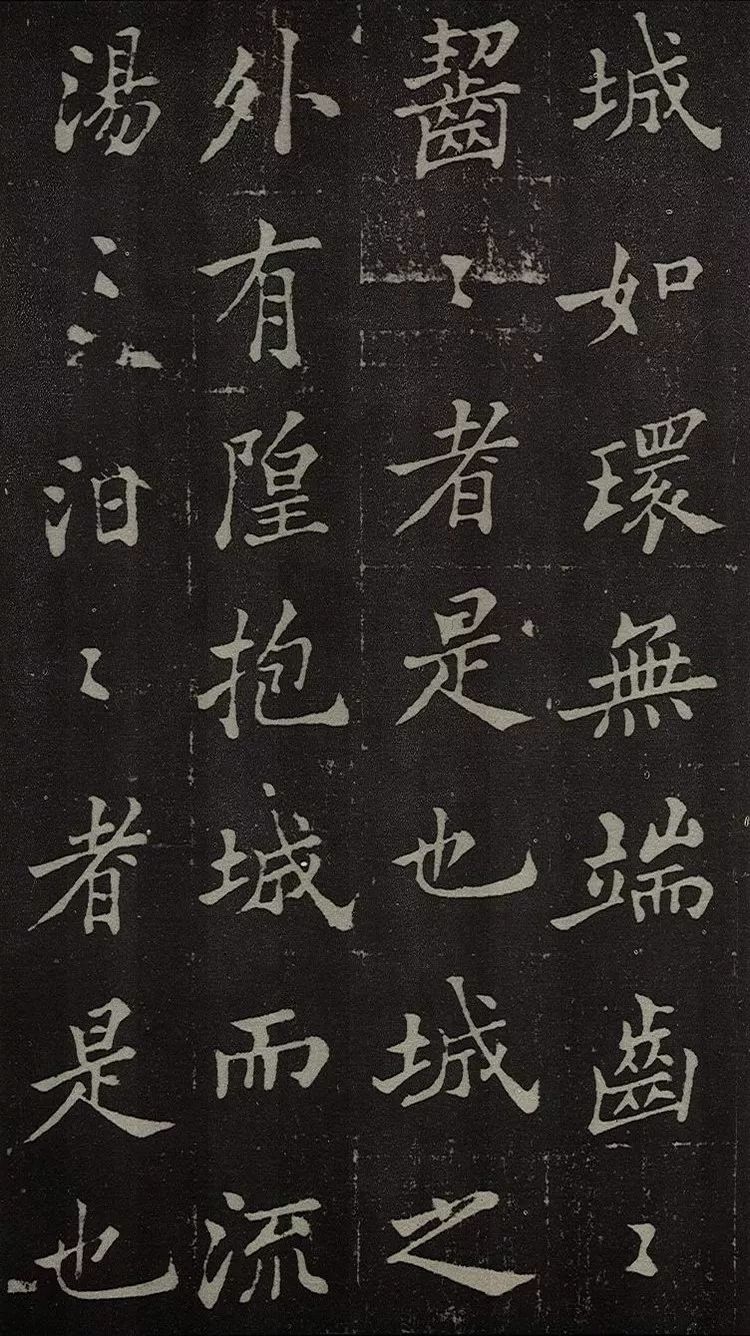 城如環無端齒〻
齧〻者是也城之
外有隍抱城而流
湯〻汩〻者是也